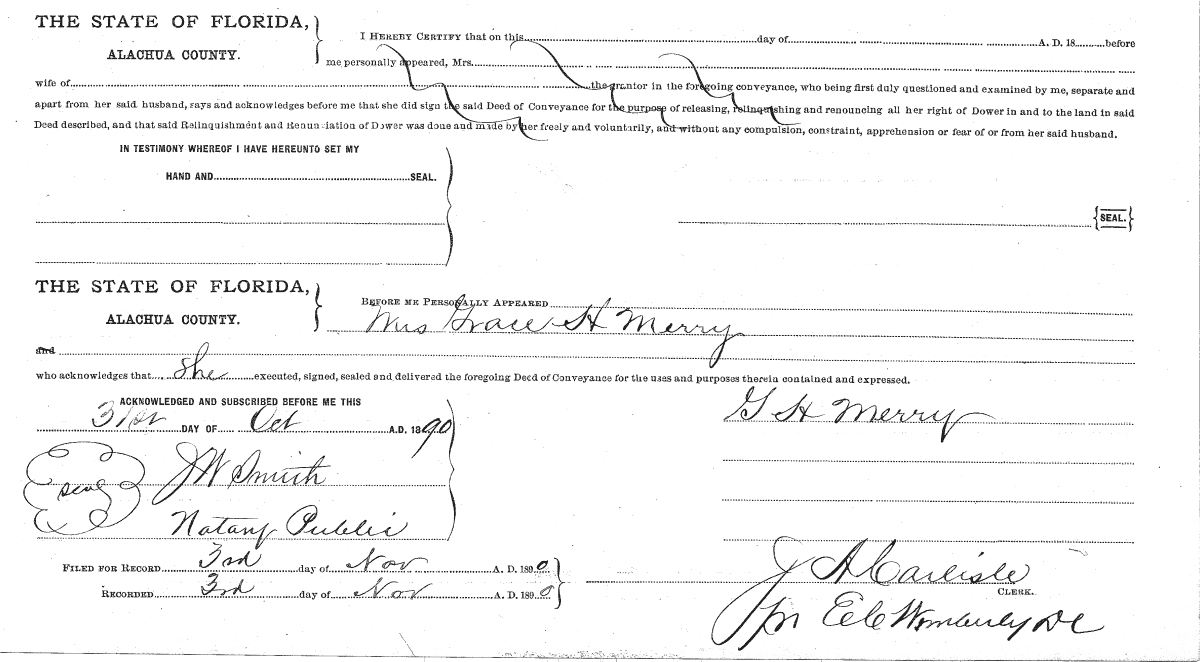 THE STATE OF FLORIDA,
ALACHUA COUNTY.
I HEREBY CERTIFY that on this day of A. D. 18 before
me personally appeared, Mrs.
wife of the grantor in the foregoing conveyance, who being first duly questioned and examined by me, separate and
apart from her said husband, says and acknowledges before me that she did sign the said Deed of Conveyance for the purpose of releasing, relinquishing and renouncing all her right of Dower in and to the land in said
Deed described, and that said Relinquishment and Renunciation of Dower was done and made by her freely and voluntarily, and without any compulsion, constraint, apprehension or fear of or from her said husband.
IN TESTIMONY WHEREOF I HAVE HEREUNTO SET MY
HAND AND SEAL.
SEAL.
THE STATE OF FLORIDA,
ALACHUA COUNTY.
BEFORE ME PERSONALLY APPEARED
Mrs Grace H Merry
and
who acknowledges that she executed, signed, sealed and delivered the foregoing Deed of Conveyance for the uses and purposes therein contained and expressed.
ACKNOWLEDGED AND SUBSCRIBED BEFORE ME THIS
31st DAY OF Oct A.D. 1890
G H Merry
J W Smith
seal
Notary Public
FILED FOR RECORD 3rd day of Nov A. D. 1890
RECORDED 3rd day of Nov A. D. 1890
J A Carlisle
CLERK.
pr E C Wimberly DC